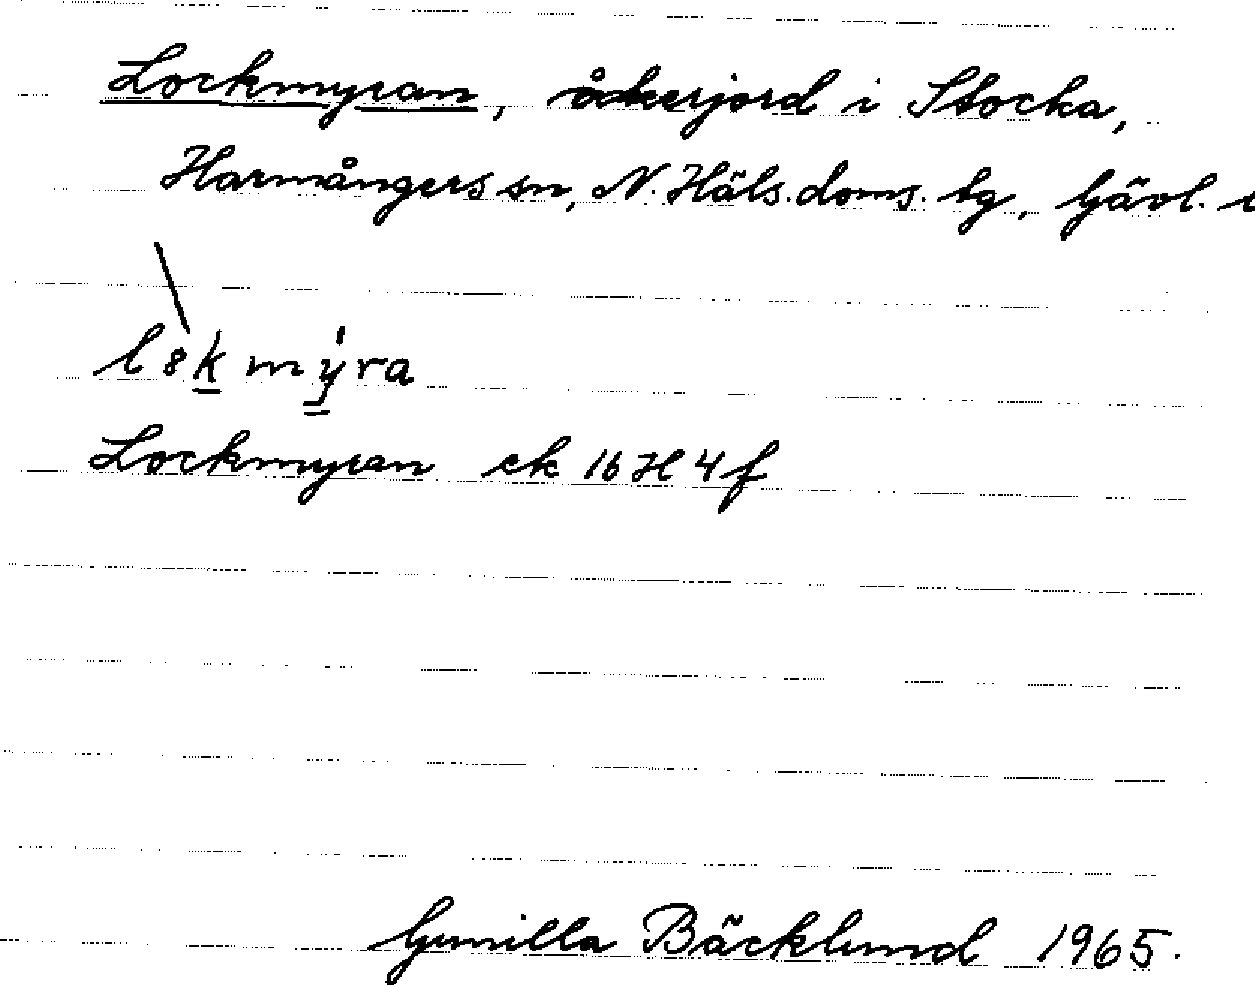 Lockmyran, åkerjord i Stocka,
Harmångers sn, N. Häls. doms. tg, Gävl.
Lockmyran ek 16H4f
Gunilla Bäcklund 1965.